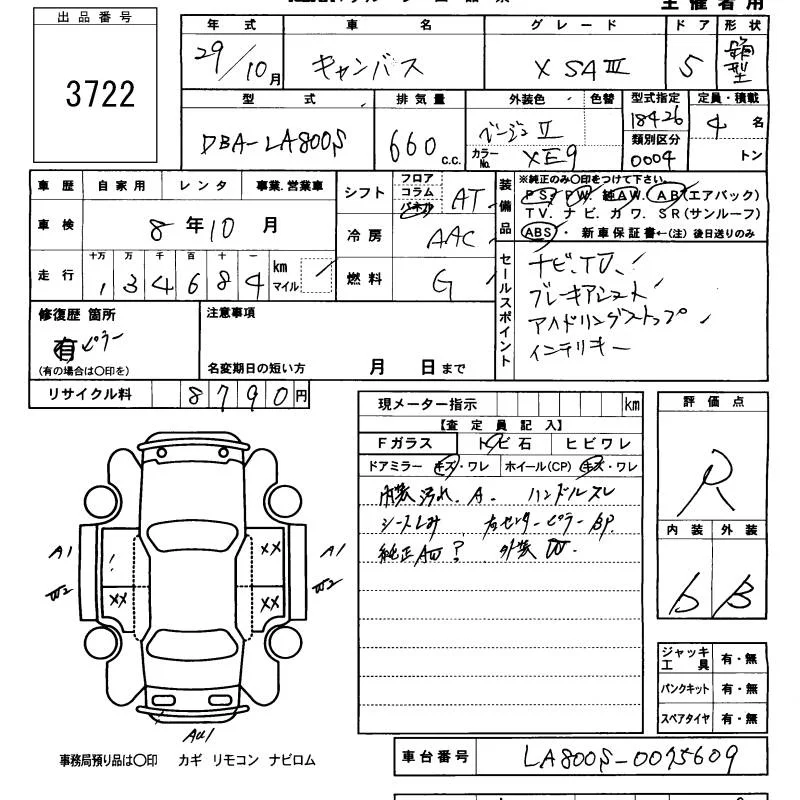 主催者用
出品番号
3722
年式 車名 グレード ドア 形状
29/10月 キャンバス X SAⅢ 5 箱型
型式 排気量 外装色 色替 型式指定 定員・積載
DBA-LA800S 660c.c. ベージュⅡ 18426 4名
カラーNo. XE9 類別区分 0004 トン
車歴 自家用 レンタ 事業.営業車
車検 8年10月
走行 十万 万 千 百 十 一
134684 km マイル
シフト フロア コラム パネル AT
冷房 AAC
燃料 G
装備品 ※純正のみ〇印をつけて下さい。
PS. PW. 純AW. AB(エアバック)
TV. ナビ. カワ. SR(サンルーフ)
ABS・ 新車保証書←(注) 後日送りのみ
セールスポイント
ナビ.TV.
ブレーキアシスト
アイドリングストップ
インテリキー
修復歴 箇所
有 ピラー
(有の場合は〇印を)
注意事項
名変期日の短い方 月 日まで
リサイクル料 8790円
現メーター指示 km
【査定員記入】
Fガラス トビ石 ヒビワレ
ドアミラー キズ・ワレ ホイール(CP) キズ・ワレ
内装汚れ.A. ハンドルスレ
シートしみ 右センターピラーBP.
純正AW? 外装W.
評価点
R
内装 外装
b B
A1 W2
! XX
XX XX
A1 W2
AU1
ジャッキ工具 有・無
パンクキット 有・無
スペアタイヤ 有・無
事務局預り品は〇印 カギ リモコン ナビロム
車台番号 LA800S-0075609